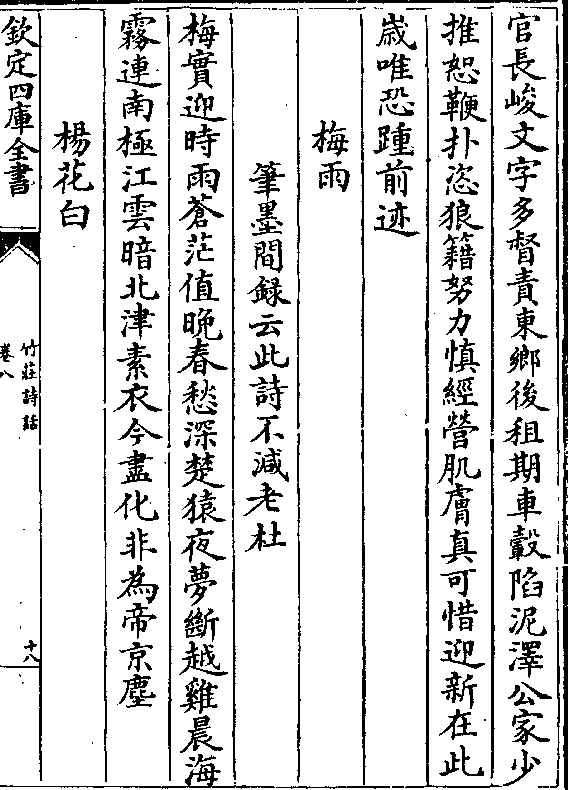 官長峻文字多督責東鄉後租期車轂陷泥澤公家少
推恕鞭扑恣狼籍努力慎經營肌膚真可惜迎新在此
嵗唯恐踵前迹
梅雨
筆墨間録云此詩不減老杜
梅實迎時雨蒼茫值晚春愁深楚猿夜夢斷越雞晨海
霧連南極江雲暗北津素衣今盡化非為帝京塵
楊花白
欽定四庫全書
竹莊詩話
卷八
十八